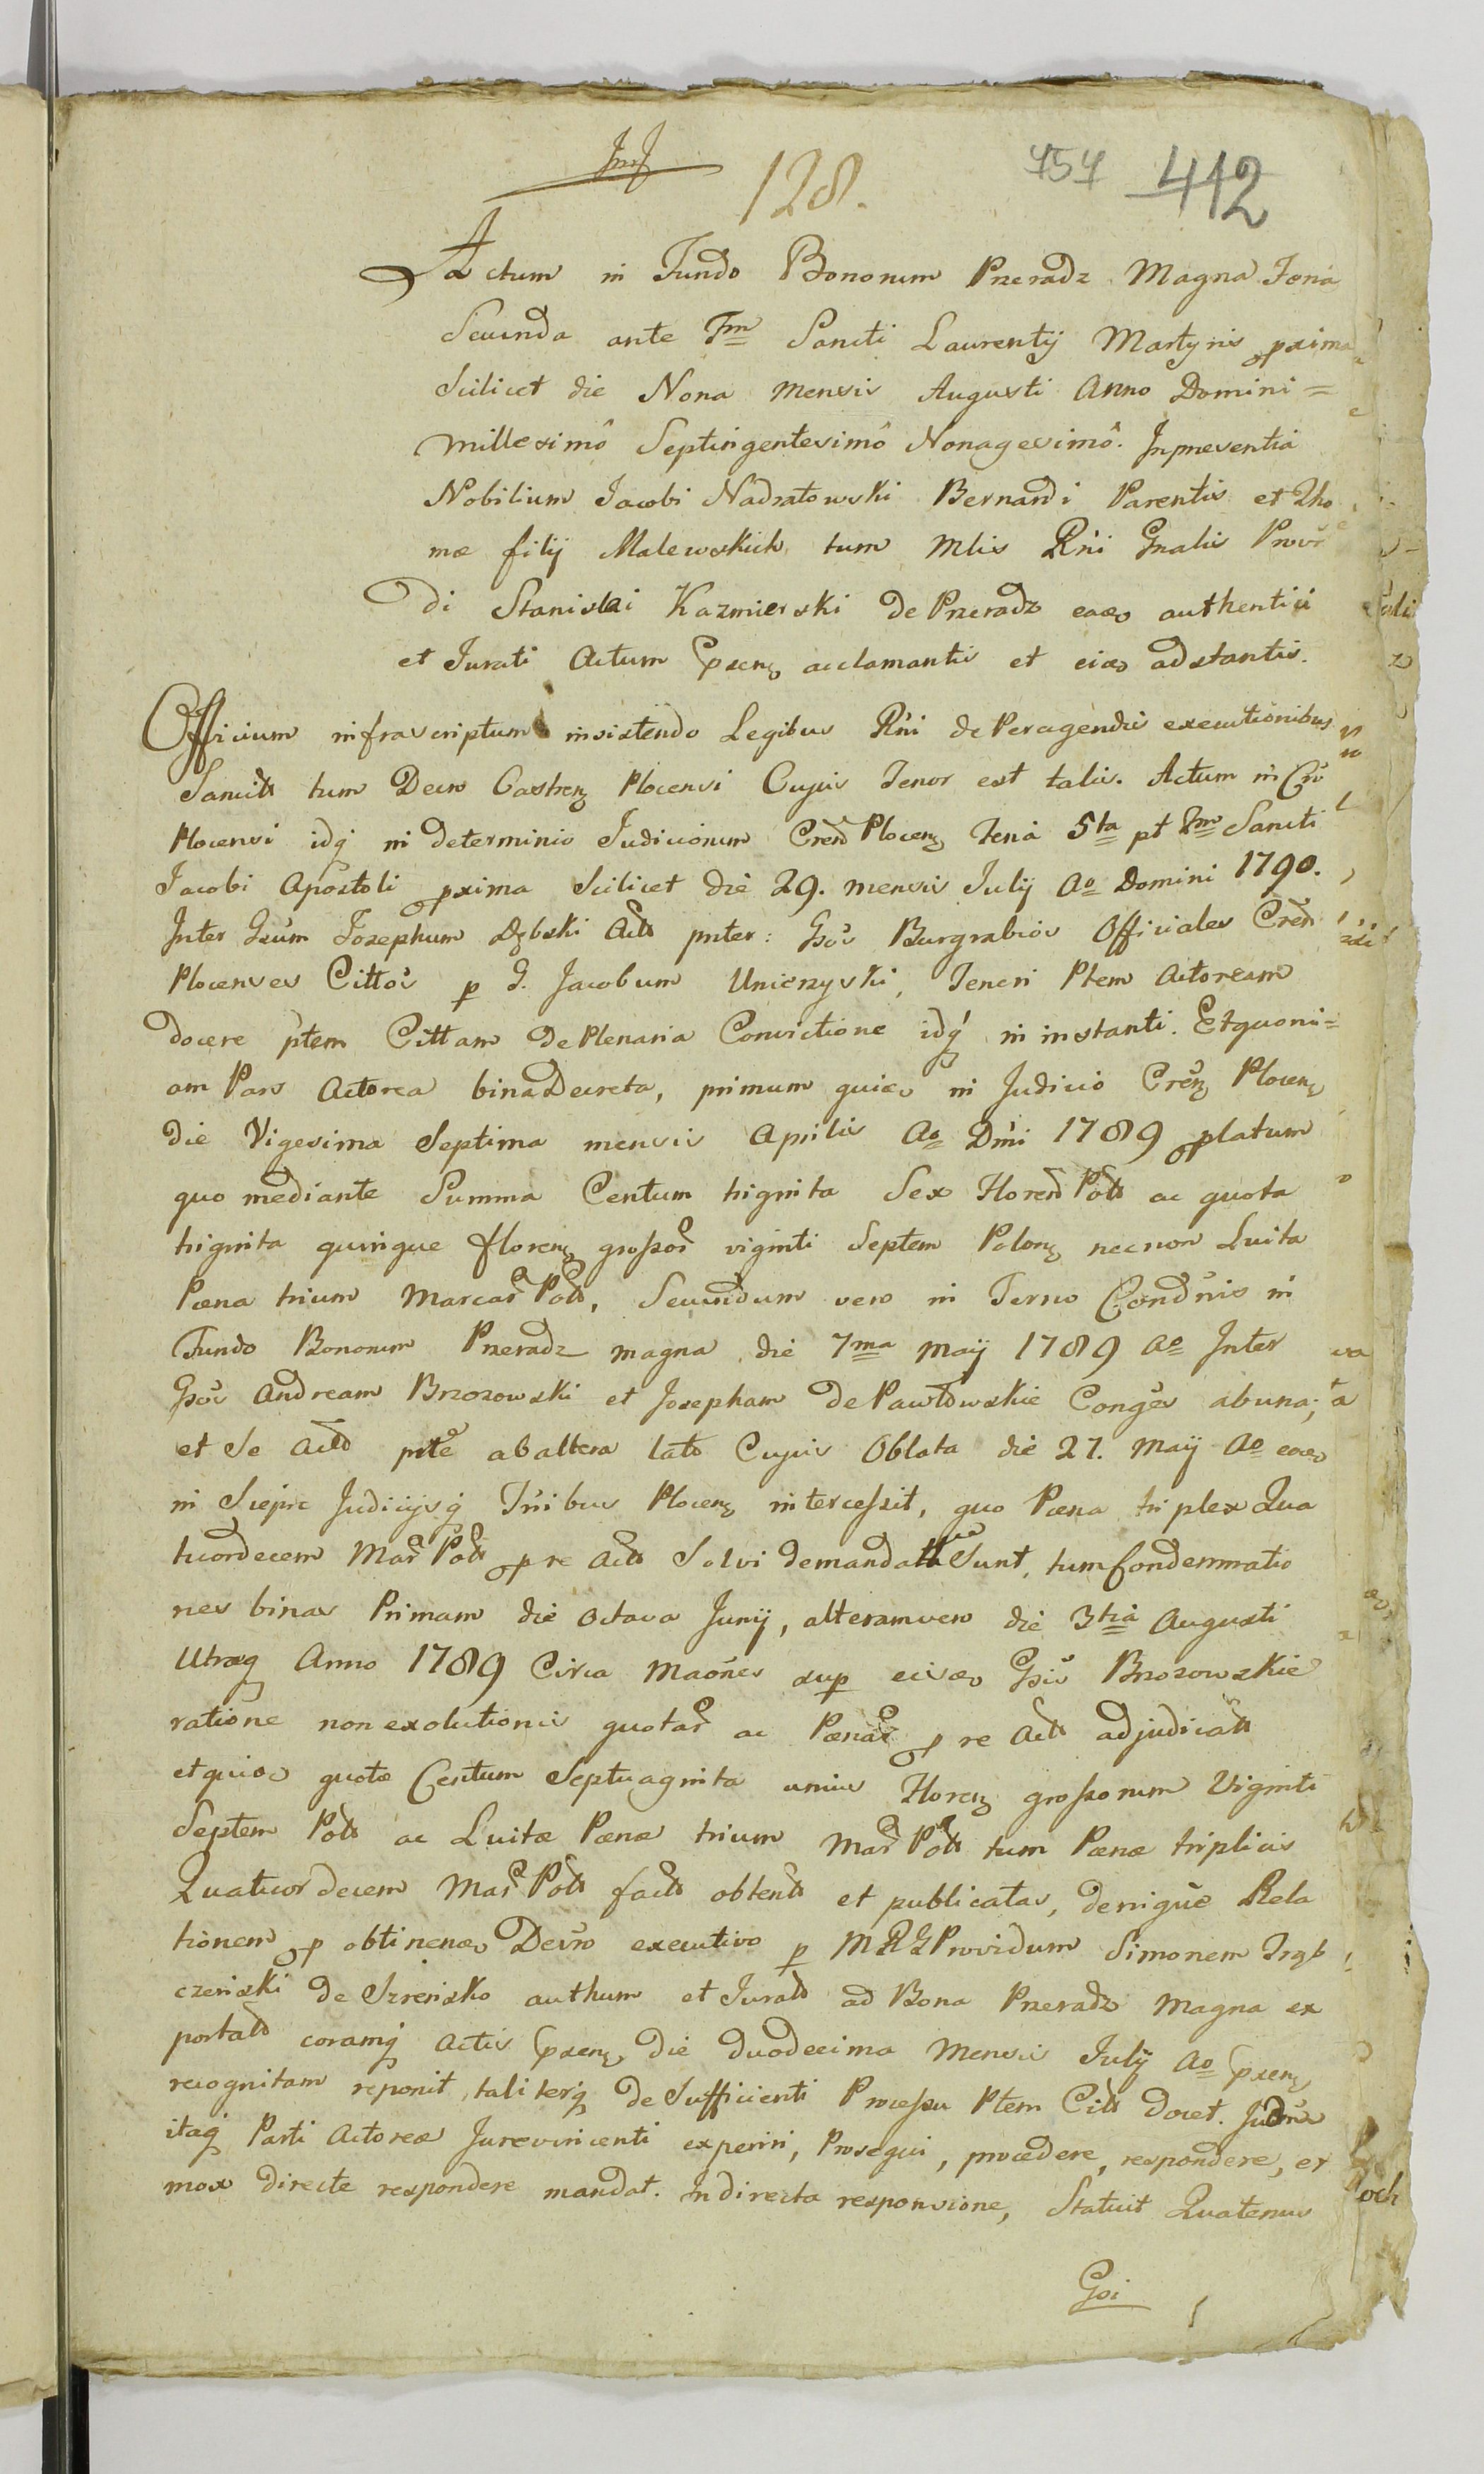 128. 757 412
Actum in Fundo Bonorum Przeradz Magna Feria
Secunda ante Fm Sancti Laurentij Martyris pxima
Scilicet die Nona mensis Augusti Anno Domini =
Millesimô Septingentesimô Nonagesimô. Inpresentia
Nobilium Jacobi Nadratowski Bernardi Parentis et Tho
mæ filij Malewskich tum Mlis Rni Gnalis Provi
di Stanislai Kazmierski de Przeradz authentici
et Jurati Actum acclamantis et adstantis.
Officium infrascriptum insistendo Legibus Rni de Peragendis executionibus
Sancitt tum Decro Castren Plocensi Cujus Tenor est talis. Actum in
Plocensi idq in determinis Judiciorum Plocen Feria 5ta pt Fm Sancti
Jacobi Apostoli pxima Scilicet die 29. mensis Julij Ao Domini 1790.
Inter Gsum Josephum Dębski Actt pnter: Gsos Burgrabios Officiales
Plocenses Cittos p G. Jacobum Unierzyski, Teneri Ptem Actoream
docere ptem Cittam de Plenaria Convictione idq in instanti. Etquoni=
am Pars Actorea bina Decreta, primum in Judicio Plocen
die Vigesima Septima mensis Aprilis Ao Dni 1789 platum
quo mediante Summa Centum triginta Sex Floren Pott ac quota
triginta quinque floren grossor viginti Septem Polon necnon Luita
Pæna trium Marcar Polt, Secundum vero in Termo Condnis in
Fundo Bonorum Przeradz magna die 7ma Maij 1789 Ao Inter
Gsos Andream Brzozowski et Josepham de Pawłowskie Conges abuna;
et Se Actt pnte abaltera latt Cujus Oblata die 27. Maij Ao
in Judicijsq Tribus Plocen intercessit, quo Pæna triplex Qua
tuordecem Mar Polt p re Actt Solvi demandatt Sunt, tum Condemnatio
nes binas Primam die Octava Junij, alteram vero die 3tia Augusti
Utraq Anno 1789 Circa Maones sup Gsis Brzozowskie
ratione non exolutionis quotar ac Pænar p re Actt adjudicatt
quotæ Centum Septuaginta unius Floren grossorum Viginti
Septem Polt ac Luitæ Pænæ trium Mar Polt tum Pænæ triplicis
Quatuordecem Mar Polt factt obtentt et publicatas, denique Rela
tionem p Decro executivo p MRG Providum Simonem
de Szrensko authum et Juratt ad Bona Przeradz Magna ex
portatt coramq Actis die duodecima Mensis Julij Ao
recognitam reponit, taliterq de Sufficienti Processu Ptem Citt docet.
itaq Parti Actoreæ Jurevincenti experiri, Prosequi, procedere, respondere, et
mox directe respondere mandat. In directa responsione, Statuit Quatenus
Gsi